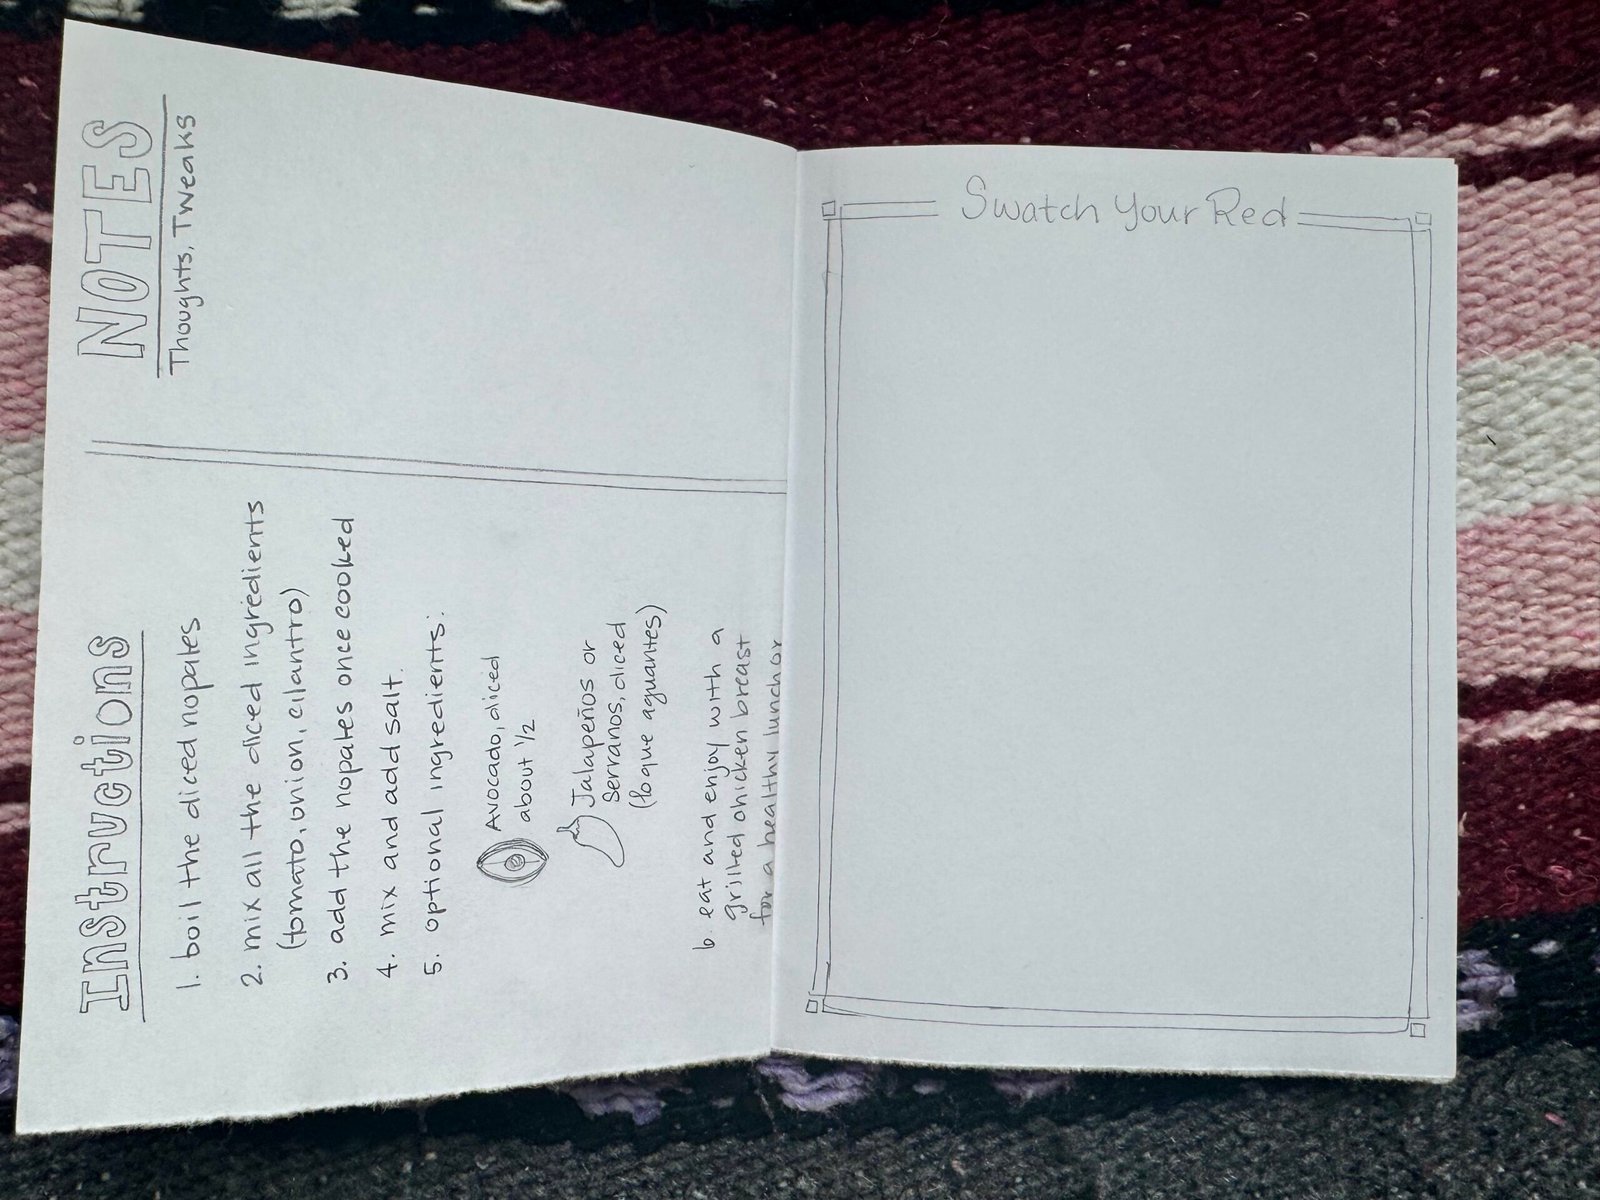 Instructions
1. boil the diced nopales
2. mix all the diced ingredients
(tomato, onion, cilantro)
3. add the nopales once cooked
4. mix and add salt.
5. optional ingredients:
Avocado, diced
about 1/2
Jalapeños or
Serranos, diced
(lo que aguantes)
6. eat and enjoy with a
grilled chicken breast
for a healthy lunch or
NOTES
Thoughts, Tweaks
Swatch Your Red